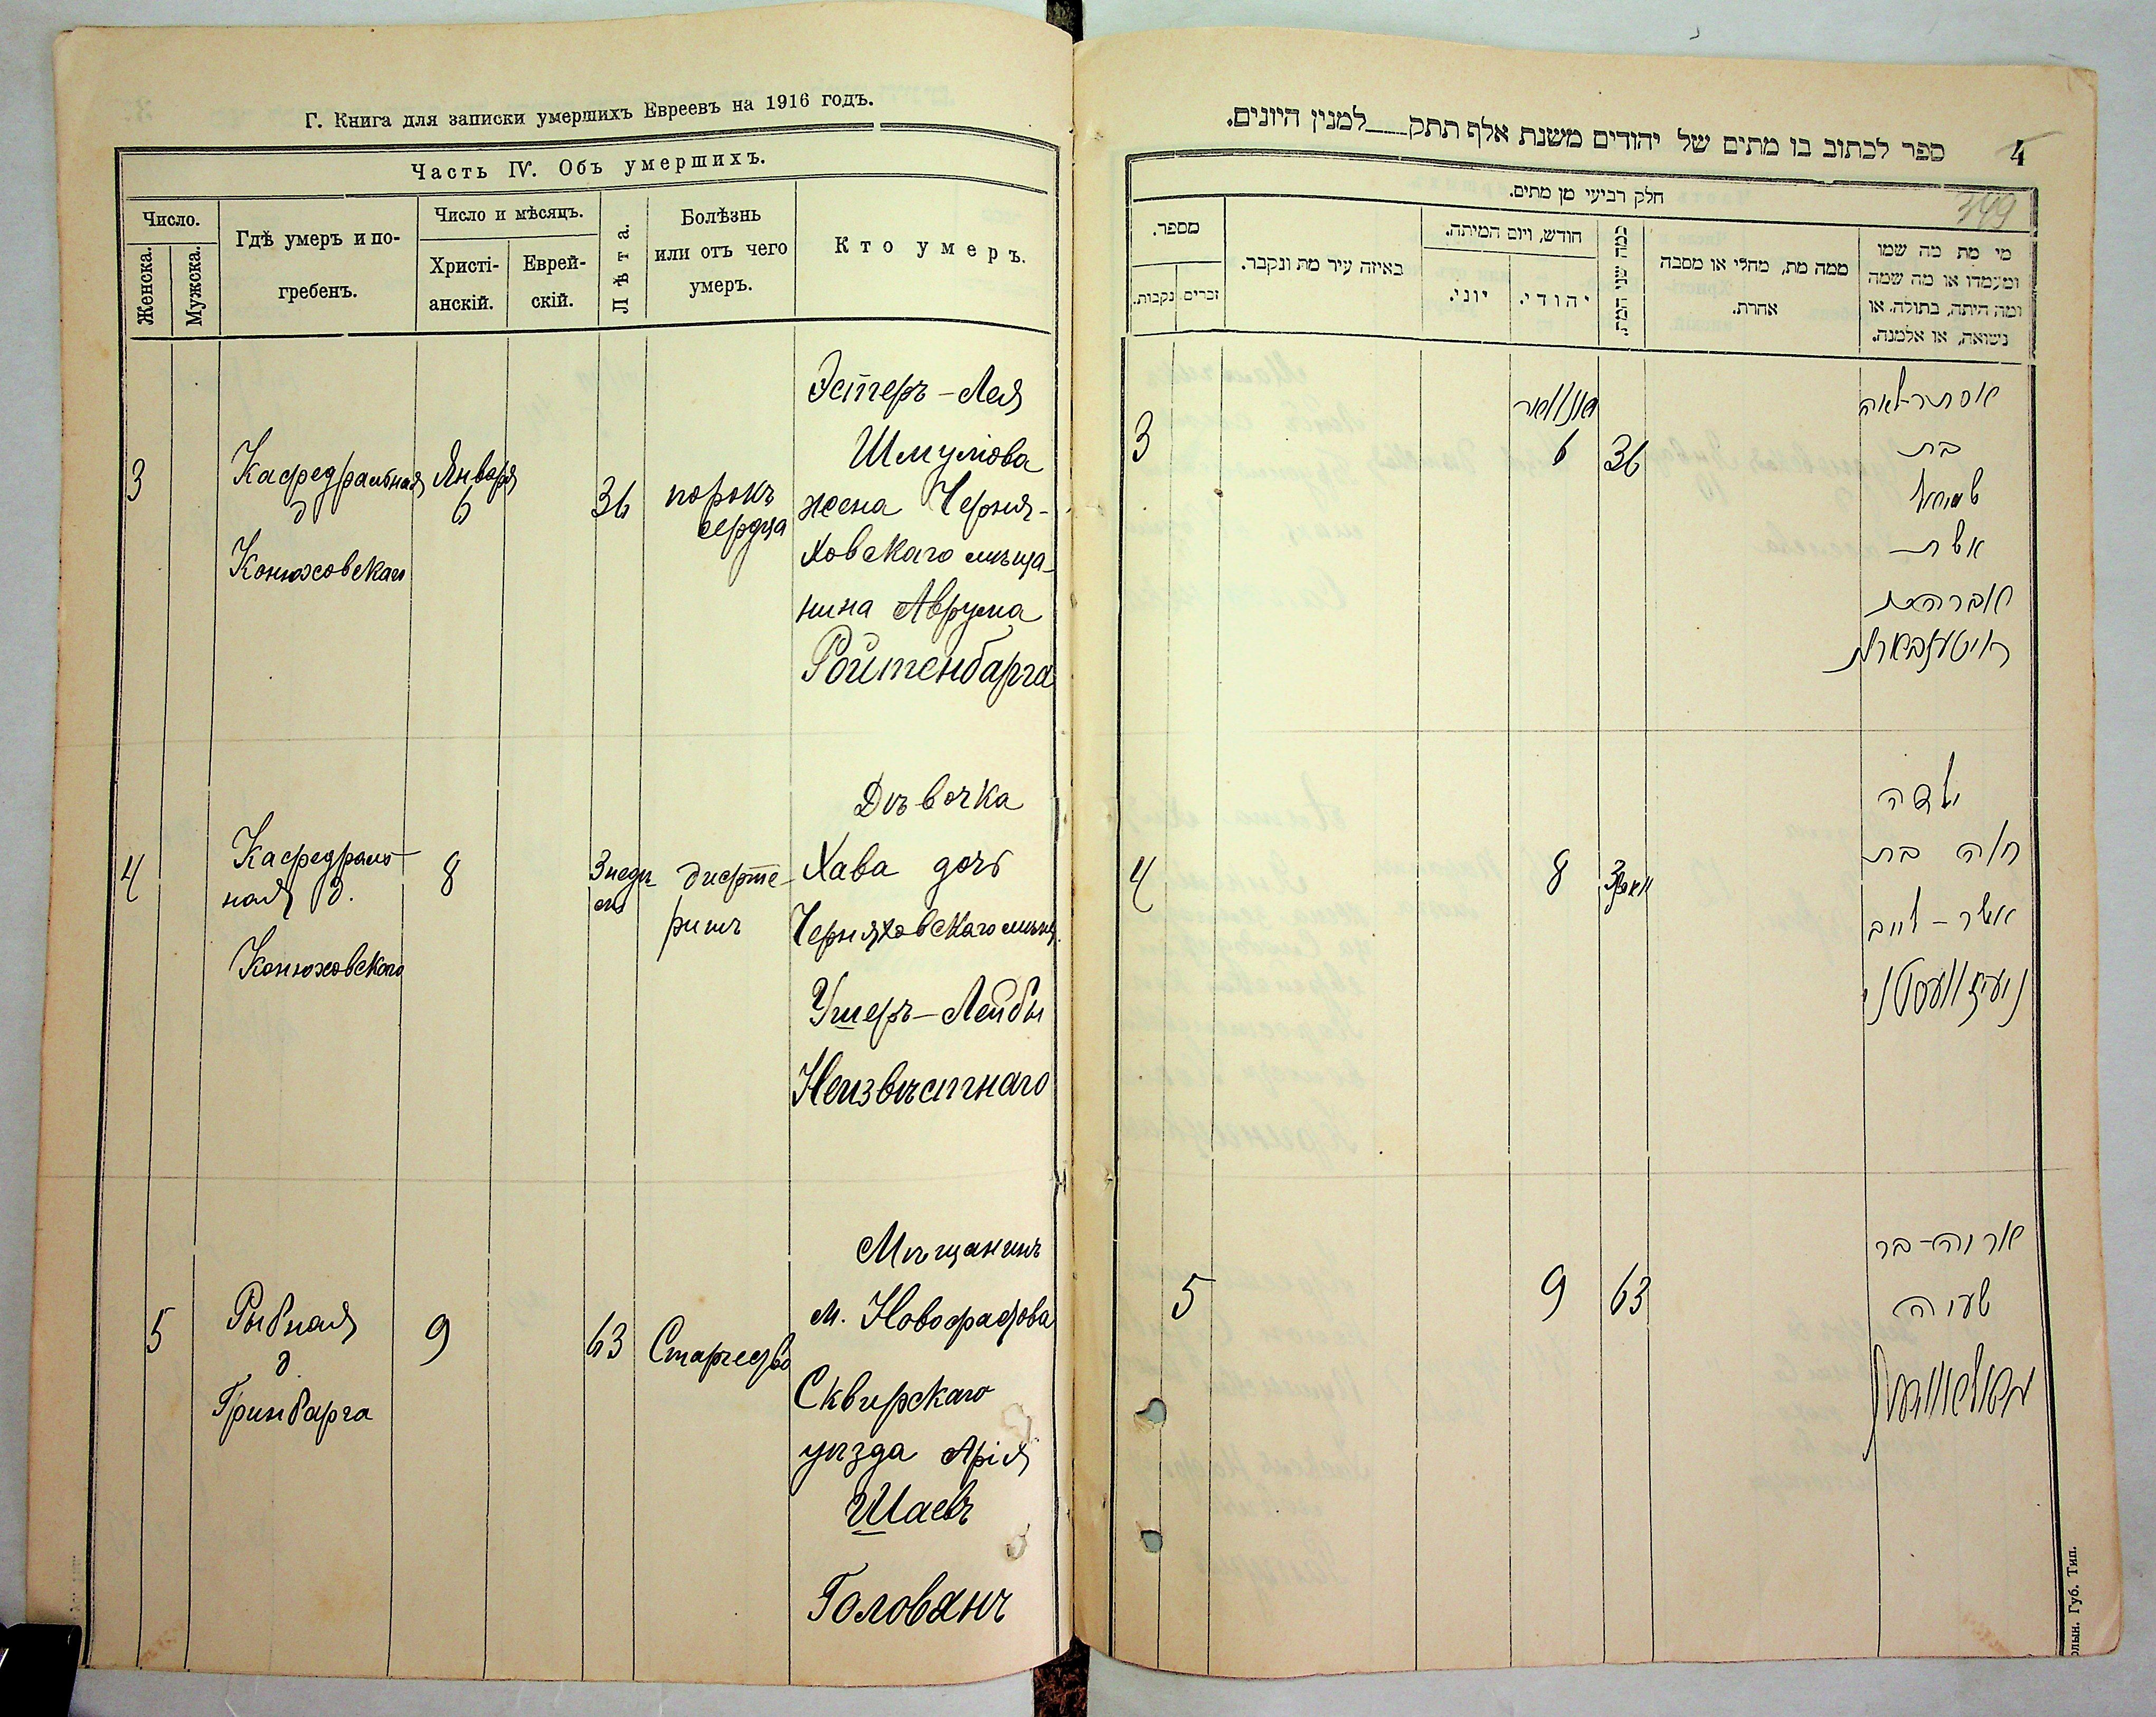 Г. Книга для записки умершихъ Евреевъ на 1916 годъ.
Часть IV. Объ умершихъ.
Число.
Женска.
Мужска.
Гдѣ умеръ и по-
гребенъ.
Число и мѣсяцъ.
Христі-
анскій.
Еврей-
скій.
Лѣта.
Болѣзнь
или отъ чего
умеръ.
Кто умеръ.
3
Кафедральная
д
Конюховскаго
Января
6
36
порокъ
сердца
Эстеръ-Лея
Шмулова
жена Черня-
ховскаго мѣща-
нина Аврума
Ройтенбарга
4
Кафедраль-
ная д.
Конюховскаго
8
3 недѣ
ли
дифте-
ритъ
Дѣвочка
Хава дочь
Черняховскаго мѣщ.
Ушеръ-Лейбы
Неизвѣстнаго
5
Рыбная
д
Гринбарга
9
63
Мѣщанинъ
м. Новофастова
Сквирскаго
уѣзда Арія
Шаевъ
Голованъ
ספר לכתוב בו מתים של יהודים משנת אלף תתק למנין היונים.
4
349
חלק רביעי מן מתים.
מספר.
נקבות.
זכרים.
באיזה עיר מת ונקבר.
חודש, ויום המיתה.
יוני.
יהודי.
כמה שני המת.
ממה מת, מחלי או מסבה
אחרת.
מי מת מה שמו
ומעמדו או מה שמה
ומה היתה, בתולה. או
נשואה, או אלמנה.
3
יאנוואר
6
36
אסתר-לאה
בת
שמואל
אשת
אברהם
רויטענבארג
4
8
3
ילדה
חוה בת
אשר-לייב
5
9
63
אריה-בר
ישעיה
олын. Губ. Тип.